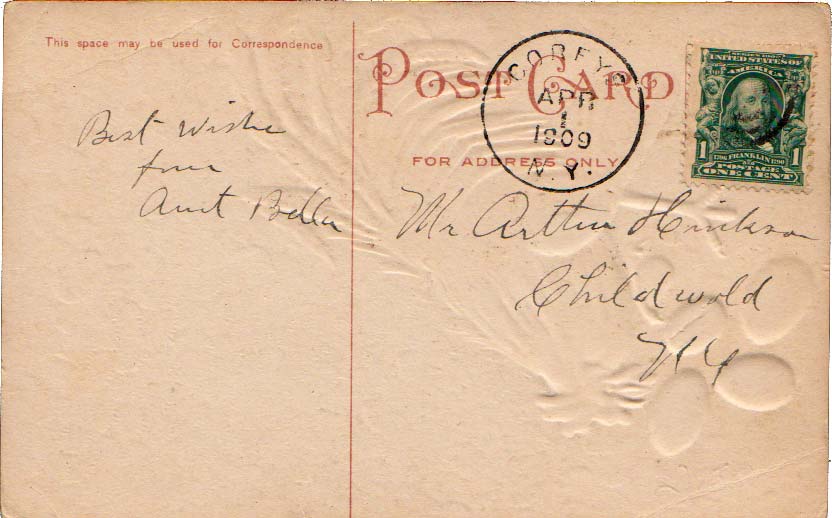 This space may be used for Correspondence
POST CARD
COREYS
APR
1
1909
N. Y.
SERIES 1902
UNITED STATES OF
AMERICA
1 1706 FRANKLIN 1790 1
POSTAGE
ONE CENT
FOR ADDRESS ONLY
Best Wishe
from
Aunt Bella
Mr Arthur Hinkson
Childwold
N Y